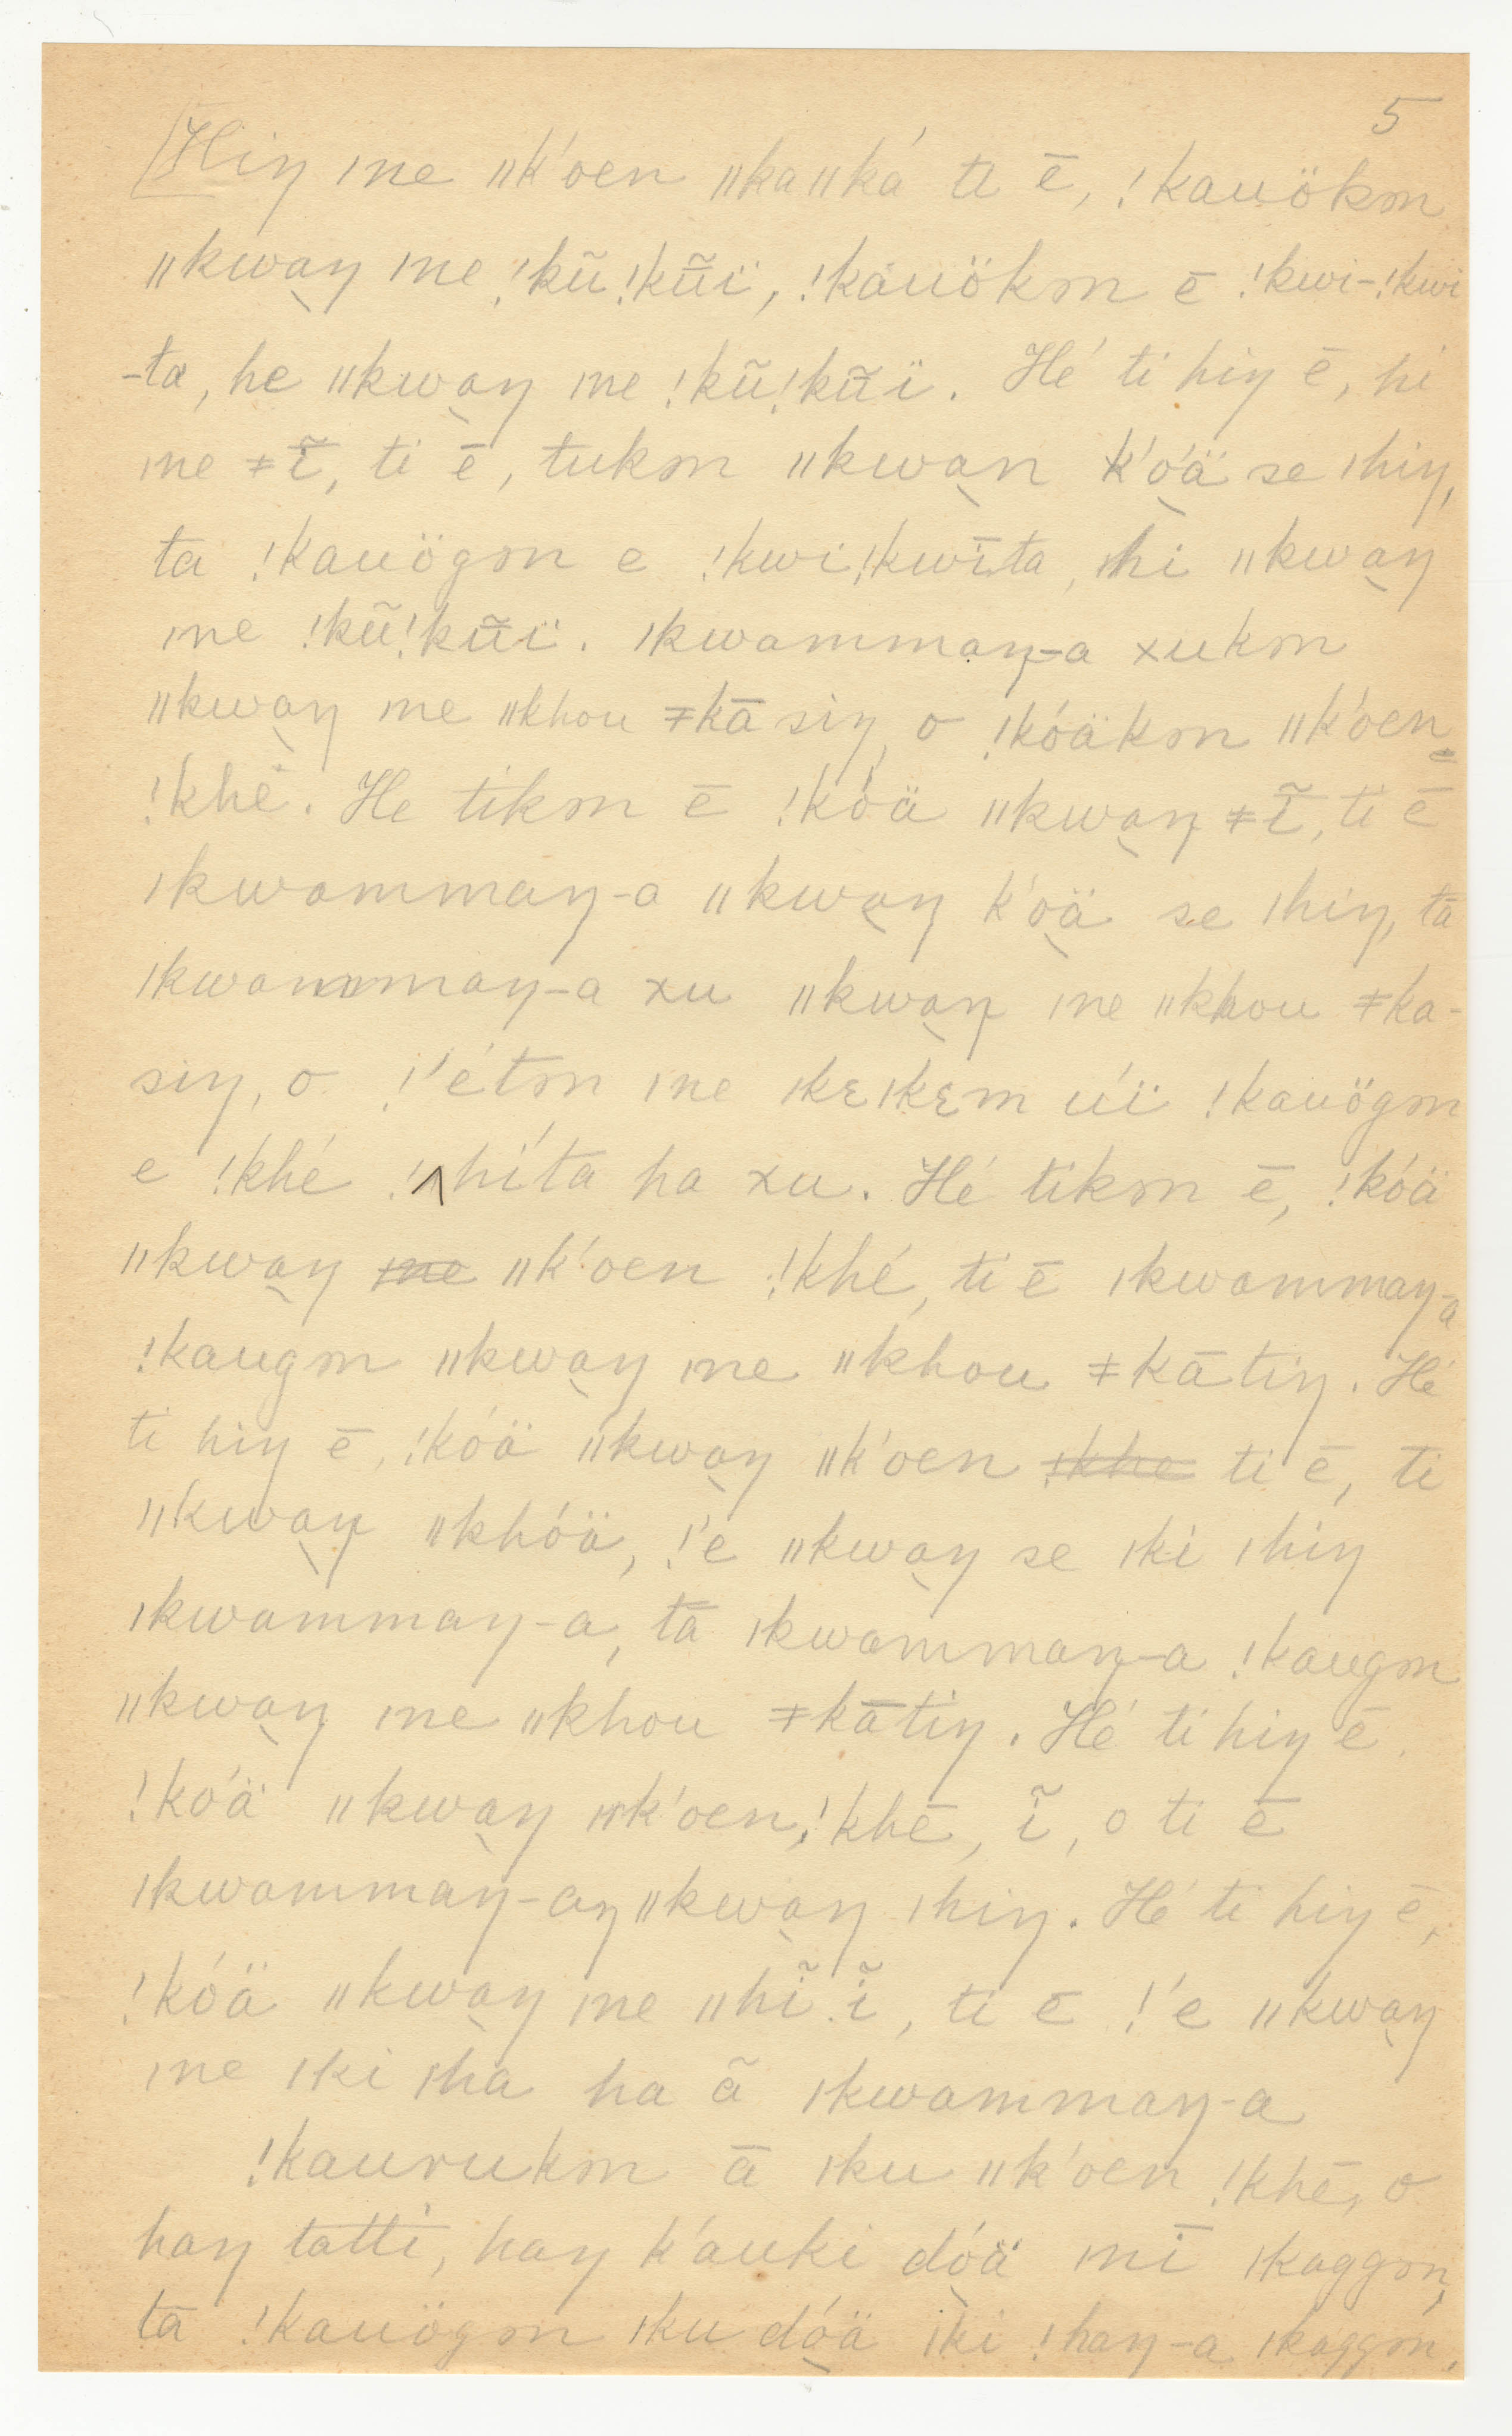 5
[Hiŋ ıne ǁk'oen ǁkaǁká ti ē, !kauökm
ǁkwa̱ŋ ıne !kũ!kũ̅ï, !káuökm ē !kwi-!kwi
-ta, he ǁkwa̱ŋ ıne !kũ!kũ̅ï. Hé ti hiŋ ē, hi
ıne ǂĩ̅, ti ē, tukm ǁkwa̱n k'o̱ä se ıhiŋ,
ta !kauögm e !kwi!kwīta, hi ǁkwa̱ŋ
ıne !kũ!kũ̅ï. ıkwammaŋ-a xukm
ǁkwa̱ŋ ıne ǁkhou ǂkā siŋ, o !kóäkm ǁk'oen
!khē. He tikm ē !kóä ǁkwa̱ŋ ǂĩ̅, ti ē
ıkwammaŋ-a ǁkwa̱ŋ k'o̱ä se ıhiŋ, tā
ıkwammaŋ-a xu ǁkwa̱ŋ ıne ǁkhou ǂka-
siŋ, o !'étm ıne ıkɛıkɛm úï !kauögm
e !khé !híta ha xu. Hé tikm ē, !kóä
ǁkwa̱ŋ ǁk'oen !khé, ti ē ıkwammaŋ-a
!kaugm ǁkwa̱ŋ ıne ǁkhou ǂkātiŋ. Hé
ti hiŋ ē, !kóä ǁkwa̱ŋ ǁk'oen ti ē, ti
ǁkwa̱ŋ ǁkhóä, !'e ǁkwa̱ŋ se ıki ıhiŋ
ıkwammaŋ-a, tā ıkwammaŋ-a !kaugm
ǁkwa̱ŋ ıne ǁkhou ǂkātiŋ. Hé ti hiŋ ē,
!kóä ǁkwa̱ŋ ǁk'oen !khē, ĩ, o ti ē
ıkwammaŋ-aŋ ǁkwa̱ŋ ıhiŋ. Hé ti hiŋ ē,
!kóä ǁkwa̱ŋ ıne ǁhĩ ĩ, ti ē !'e ǁkwa̱ŋ
ıne ıki ıha ha ã ıkwammaŋ-a
!kaurukm ā ıku ǁk'oen !khē, o
haŋ tatti, haŋ k'auki dó̱ä mī ıkaggm,
tā !kauögm ıku dó̱ä ıki !haŋ-a ıkaggm,